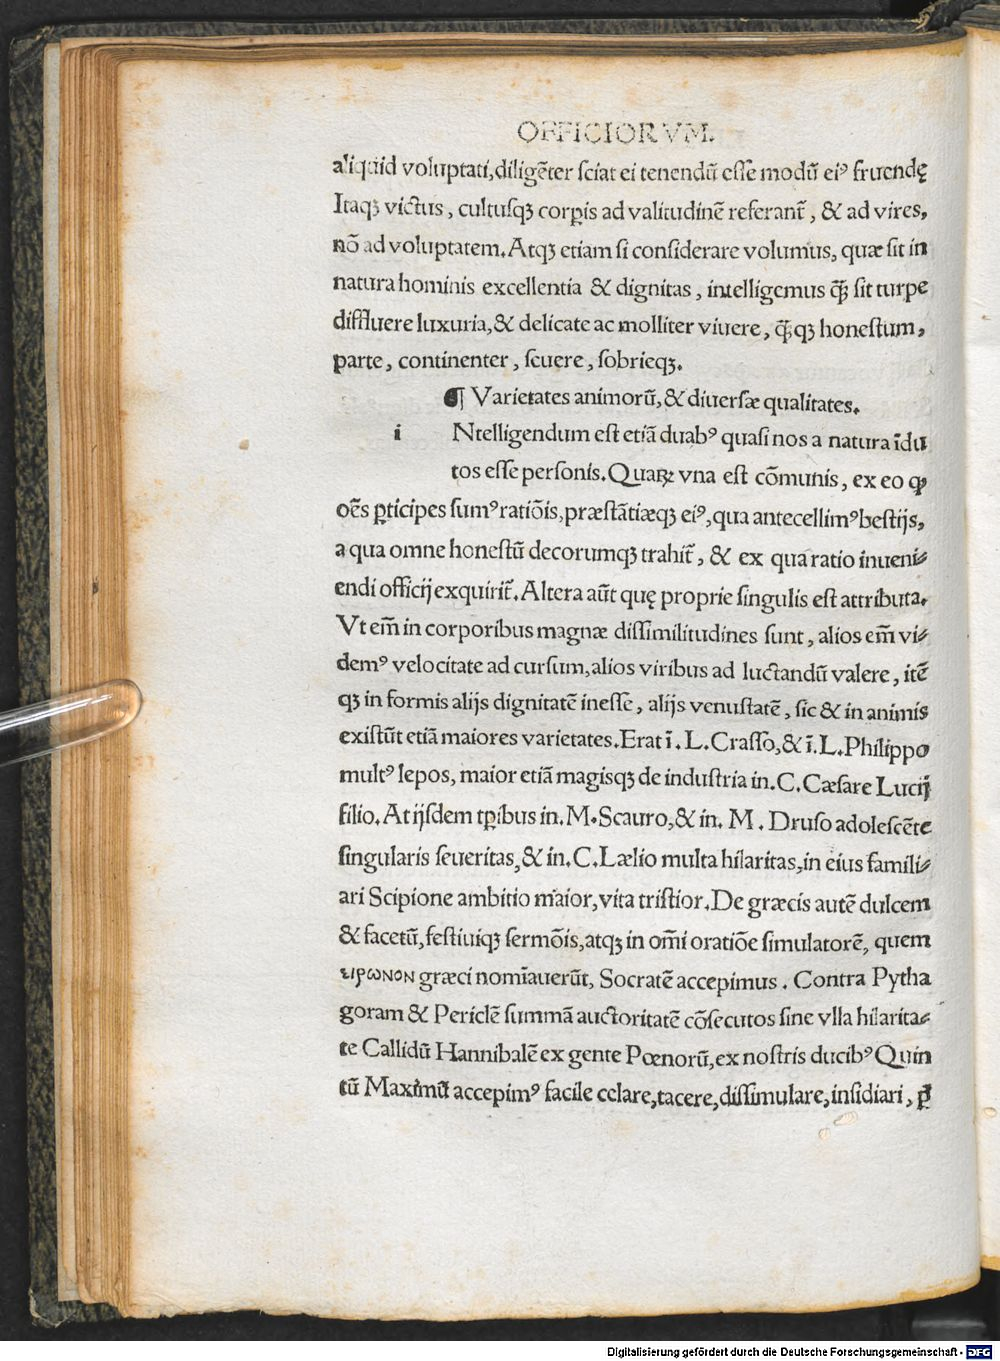 OFFICIORVM.
aliquid voluptati,diligẽter sciat ei tenendũ esse modũ eiꝰ fruendę
Itaqꝫ victus, cultusqꝫ corꝑis ad valitudinẽ referant̃, & ad vires,
nõ ad voluptatem. Atqꝫ etiam si considerare volumus, quæ sit in
natura hominis excellentia & dignitas, intelligemus q̃ꝫ sit turpe
diffluere luxuria,& delicate ac molliter viuere, q̃ꝫqꝫ honestum,
parte, continenter, seuere, sobrieqꝫ.
¶ Varietates animorũ,& diuersæ qualitates.
i Ntelligendum est etiã duabꝰ quasi nos a natura ĩdu
tos esse personis. Quaꝝ vna est cõmunis, ex eo ꝙ
oẽs ꝑticipes sumꝰ ratiõis,præstãtiæqꝫ eiꝰ,qua antecellimꝰ bestijs,
a qua omne honestũ decorumqꝫ trahit̃, & ex qua ratio inueni⸗
endi officij exquirit̃. Altera aũt quę proprie singulis est attributa.
Vt em̃ in corporibus magnæ dissimilitudines sunt, alios em̃ vi⸗
demꝰ velocitate ad cursum,alios viribus ad luctandũ valere, itẽ
qꝫ in formis alijs dignitatẽ inesse, alijs venustatẽ, sic & in animis
existũt etiã maiores varietates. Erat ĩ. L. Crasso,& ĩ. L. Philippo
multꝰ lepos, maior etiã magisqꝫ de industria in. C. Cæsare Lucij
filio. At ijsdem tꝑibus in. M. Scauro,& in. M. Druso adolescẽte
singularis seueritas,& in. C. Lælio multa hilaritas,in eius famili⸗
ari Scipione ambitio maior, vita tristior. De græcis autẽ dulcem
& facetũ,festiuiqꝫ sermõis,atqꝫ in om̃i oratiõe simulatorẽ, quem
ειρωνον græci nomĩauerũt, Socratẽ accepimus. Contra Pytha
goram & Periclẽ summã auctoritatẽ cõsecutos sine vlla hilarita⸗
te Callidũ Hannibalẽ ex gente Pœnorũ,ex nostris ducibꝰ Quin
tũ Maximũ accepimꝰ facile celare,tacere,dissimulare,insidiari, p̃
Digitalisierung gefördert durch die Deutsche Forschungsgemeinschaft - DFG